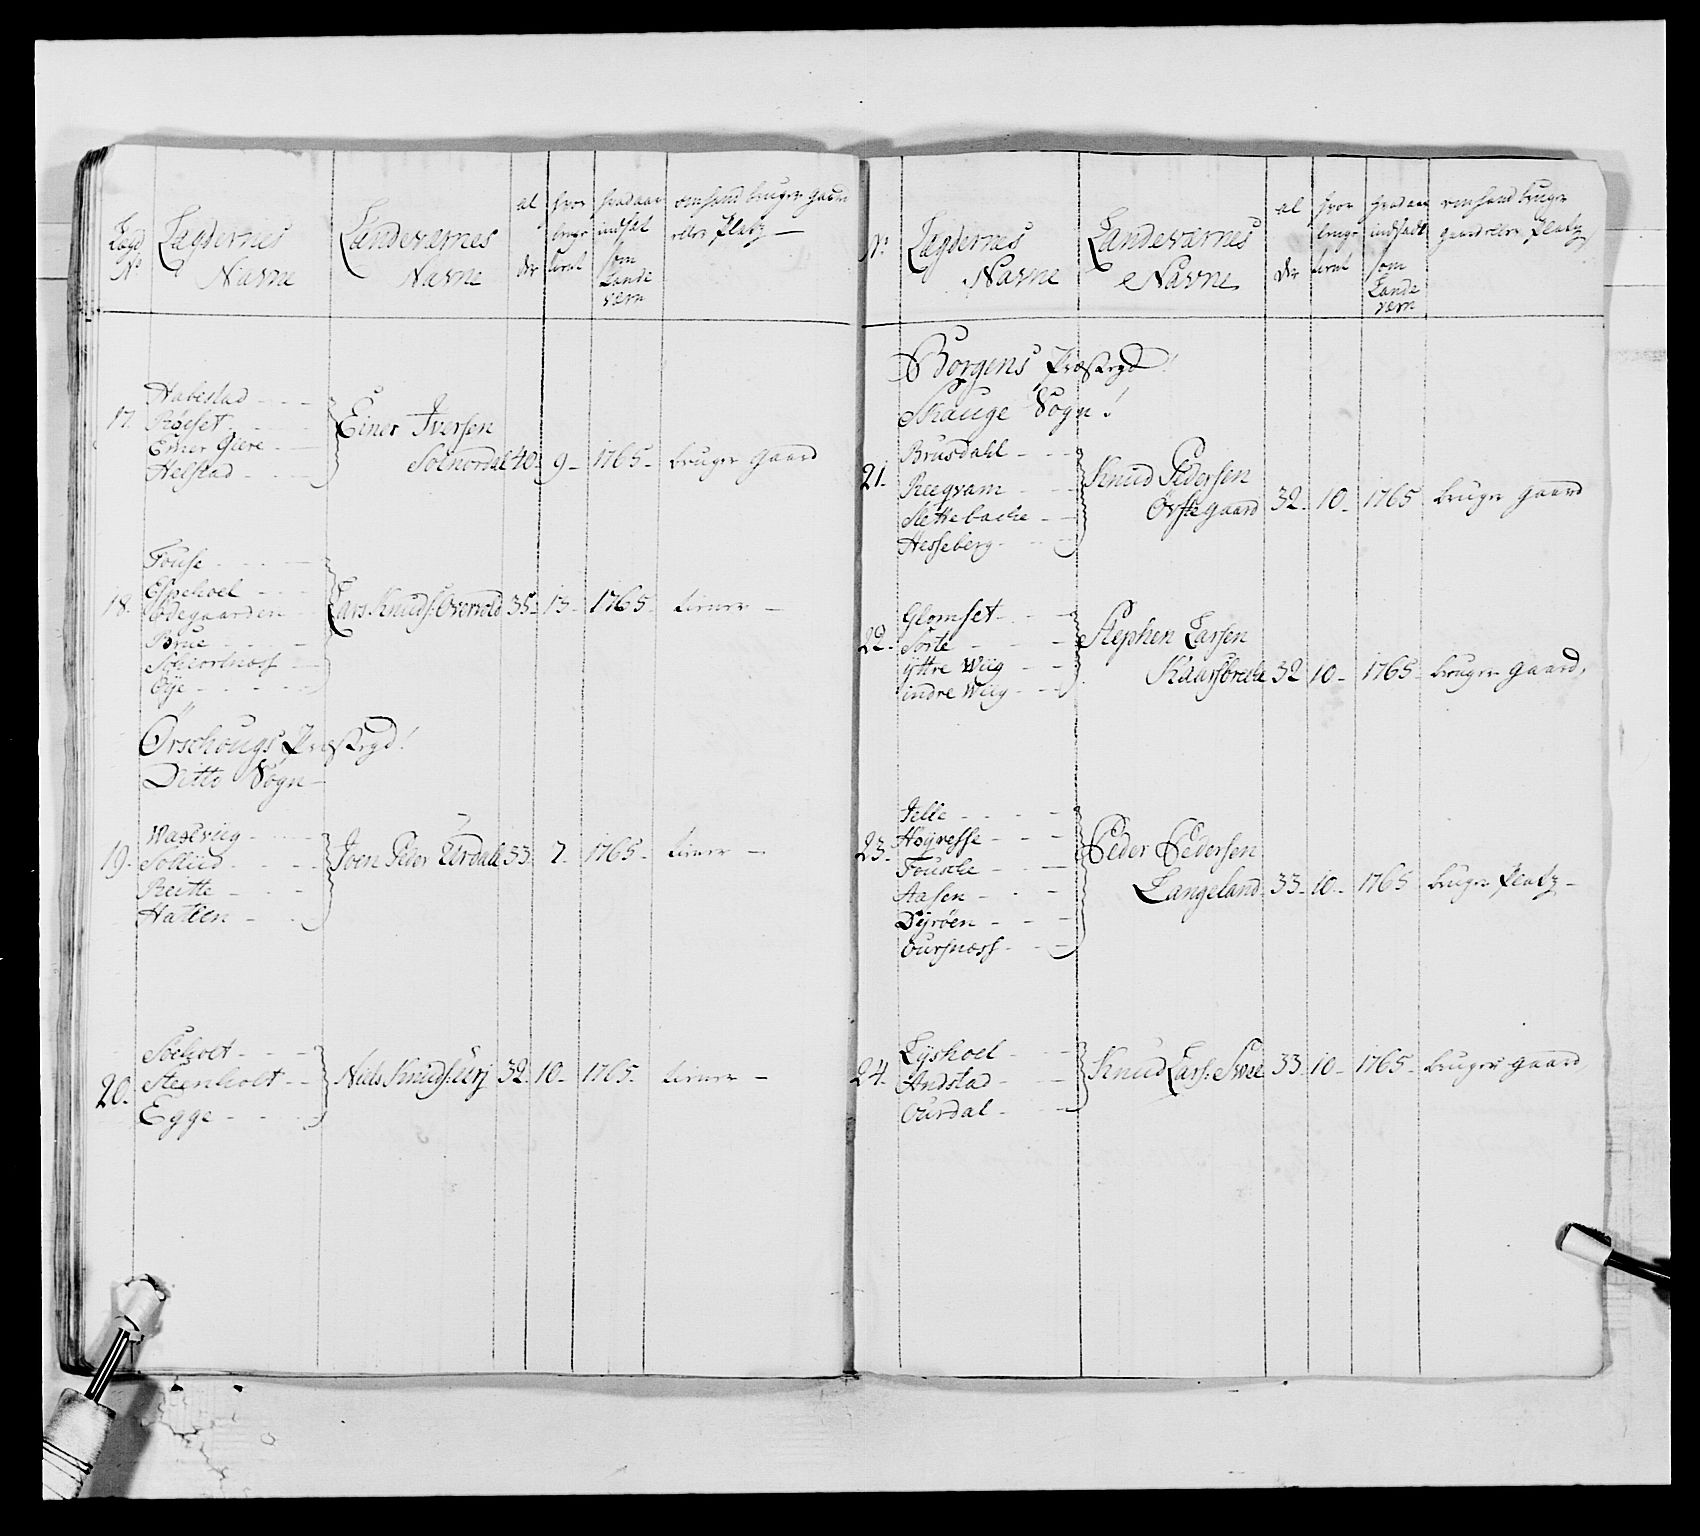 Lægd No
Lægdernes Navne
Landeværnes Navne
al der
hvor lenge tient
hvad aar indsat som Lande værn
om hand bruger gaard eller Platz
17.
Habestad
Røeset
Emer Giere
Helstad
Einer Iversen
Solnordal 40. 9. 1765. bruger gaard
18.
Fouse
Espehoel
Ødegaarden
Brue
Øye
Lars Knuds: Overvold 35. 13. 1765. tiener
Ørschougs Præstegd!
Ditto Sogn
19.
Waslvieg
Sollied
Reitte
Hatlen
Joen Peder Urdahl 33. 7. 1765. tiener
20.
Søeholt
Steenholt
Egge
Niels Knuds: Urj 32. 10. 1765. tiener
No
Lægdernes Navne
Landeværnes Navne
al der
hvor lenge tient
hvad aar indsadt som Lande værn
om hand bruger gaard eller Platz
Borgens Præstegd!
Skauge Sogn!
21.
Brusdahl
Reeqvam
Slettebache
Hesseberg
Knud Pedersen
Øvstegaard 32. 10. 1765 bruger gaard
22.
Glomset
Sorte
Yttre Wiig
indre Wiig
Stephen Larsen
Kaarsbrecke 32 10. 1765. bruger gaard,
23.
Jelle
Høyvesse
Fousche
Aasen
Dyrøen
Oursnæss
Peder Pedersen
Langeland 33. 10. 1765 bruger Platz
24.
Lyshoel
Andstad
Ourdal
Knud Lars: Swee 33. 10. 1765. bruger gaard,